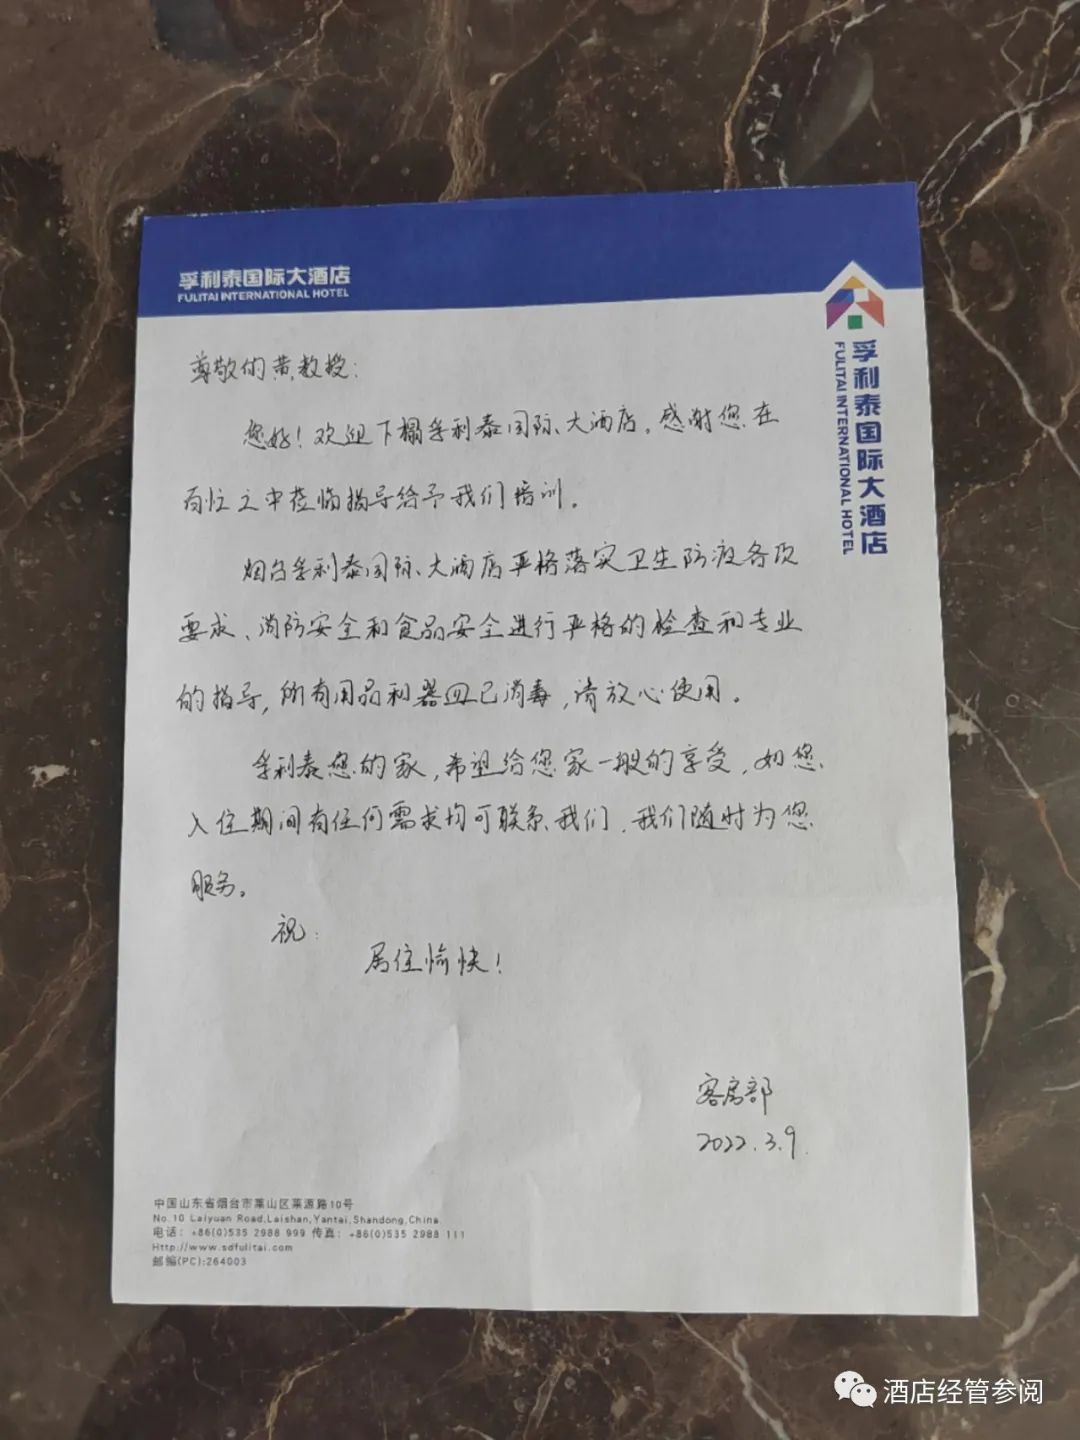 孚利泰国际大酒店
FULITAI INTERNATIONAL HOTEL
孚利泰国际大酒店
FULITAI INTERNATIONAL HOTEL
尊敬的黄教授：
您好！欢迎下榻孚利泰国际大酒店。感谢您在
百忙之中莅临指导给予我们培训。
烟台孚利泰国际大酒店严格落实卫生防疫各项
要求、消防安全和食品安全进行严格的检查和专业
的指导，所有用品和器皿已消毒，请放心使用。
孚利泰您的家，希望给您家一般的享受，如您
入住期间有任何需求均可联系我们，我们随时为您
服务。
祝：
居住愉快！
客房部
2022.3.9.
中国山东省烟台市莱山区莱源路10号
No.10 Laiyuan Road,Laishan,Yantai,Shandong,China
电话：+86(0)535 2988 999 传真：+86(0)535 2988 111
Http://www.sdfulitai.com
邮编(PC):264003
酒店经管参阅